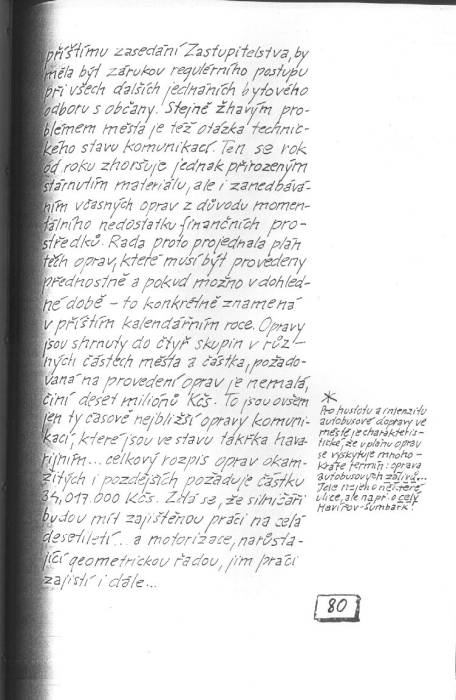 příštímu zasedání Zastupitelstva, by
měla být zárukou regulérního postupu
při všech dalších jednáních bytového
odboru s občany. Stejně žhavým pro-
blémem města je též otázka technic-
kého stavu komunikací. Ten se rok
od roku zhoršuje jednak přirozeným
stárnutím materiálu, ale i zanedbává-
ním včasných oprav z důvodu momen-
tálního nedostatku finančních pro-
středků. Rada proto projednala plán
těch oprav, které musí být provedeny
přednostně a pokud možno v dohled-
né době – to konkrétně znamená
v příštím kalendářním roce. Opravy
jsou shrnuty do čtyř skupin v růz-
ných částech města a částka, požado-
vaná na provedení oprav je nemalá,
činí deset milionů Kčs. To jsou ovšem
jen ty časově nejbližší opravy komuni-
kací, které jsou ve stavu takřka hava-
rijním... celkový rozpis oprav okam-
žitých i pozdějších požaduje částku
34,017.000 Kčs. Zdá se, že silničáři
budou mít zajištěnou práci na celá
desetiletí... a motorizace, narůsta-
jící geometrickou řadou, jim práci
zajistí i dále...
*
Pro hustotu a intenzitu
autobusové dopravy ve
městě je charakteris-
tické, že v plánu oprav
se vyskytuje mnoho-
kráte termín: oprava
autobusových zálivů...
Jde nejen o některé
ulice, ale např. o celý
Havířov-Šumbark!
80